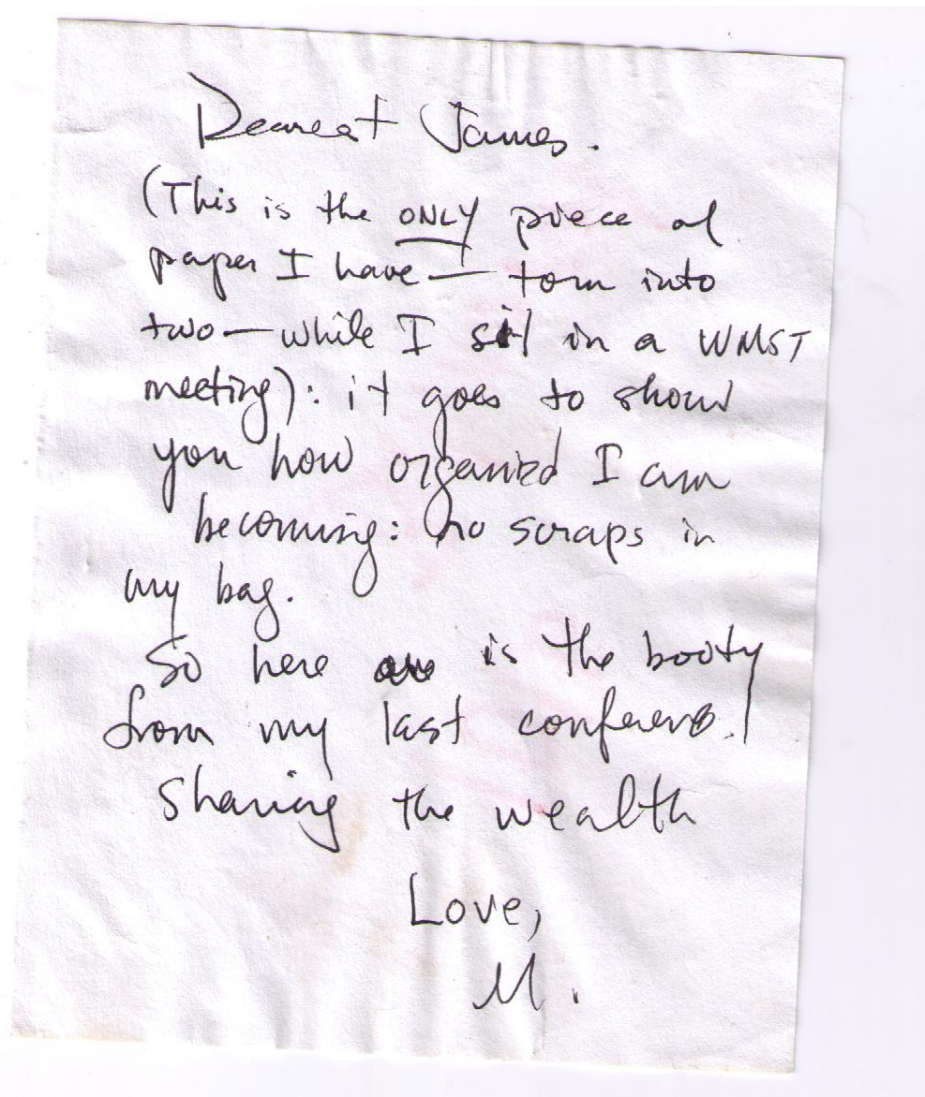 Dearest James.
(This is the ONLY piece of
paper I have — torn into
two — while I sit in a WMST
meeting): it goes to show
you how organized I am
becoming: no scraps in
my bag.
So here is the booty
from my last conference!
Sharing the wealth
Love,
M.